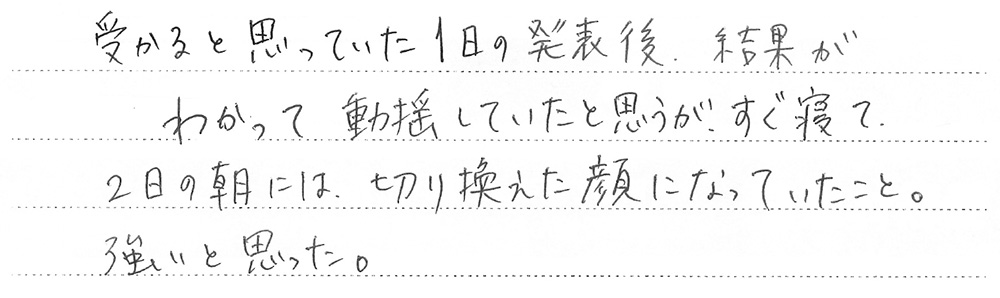 受かると思っていた1日の発表後、結果が
わかって動揺していたと思うが、すぐ寝て、
2日の朝には、切り換えた顔になっていたこと。
強いと思った。